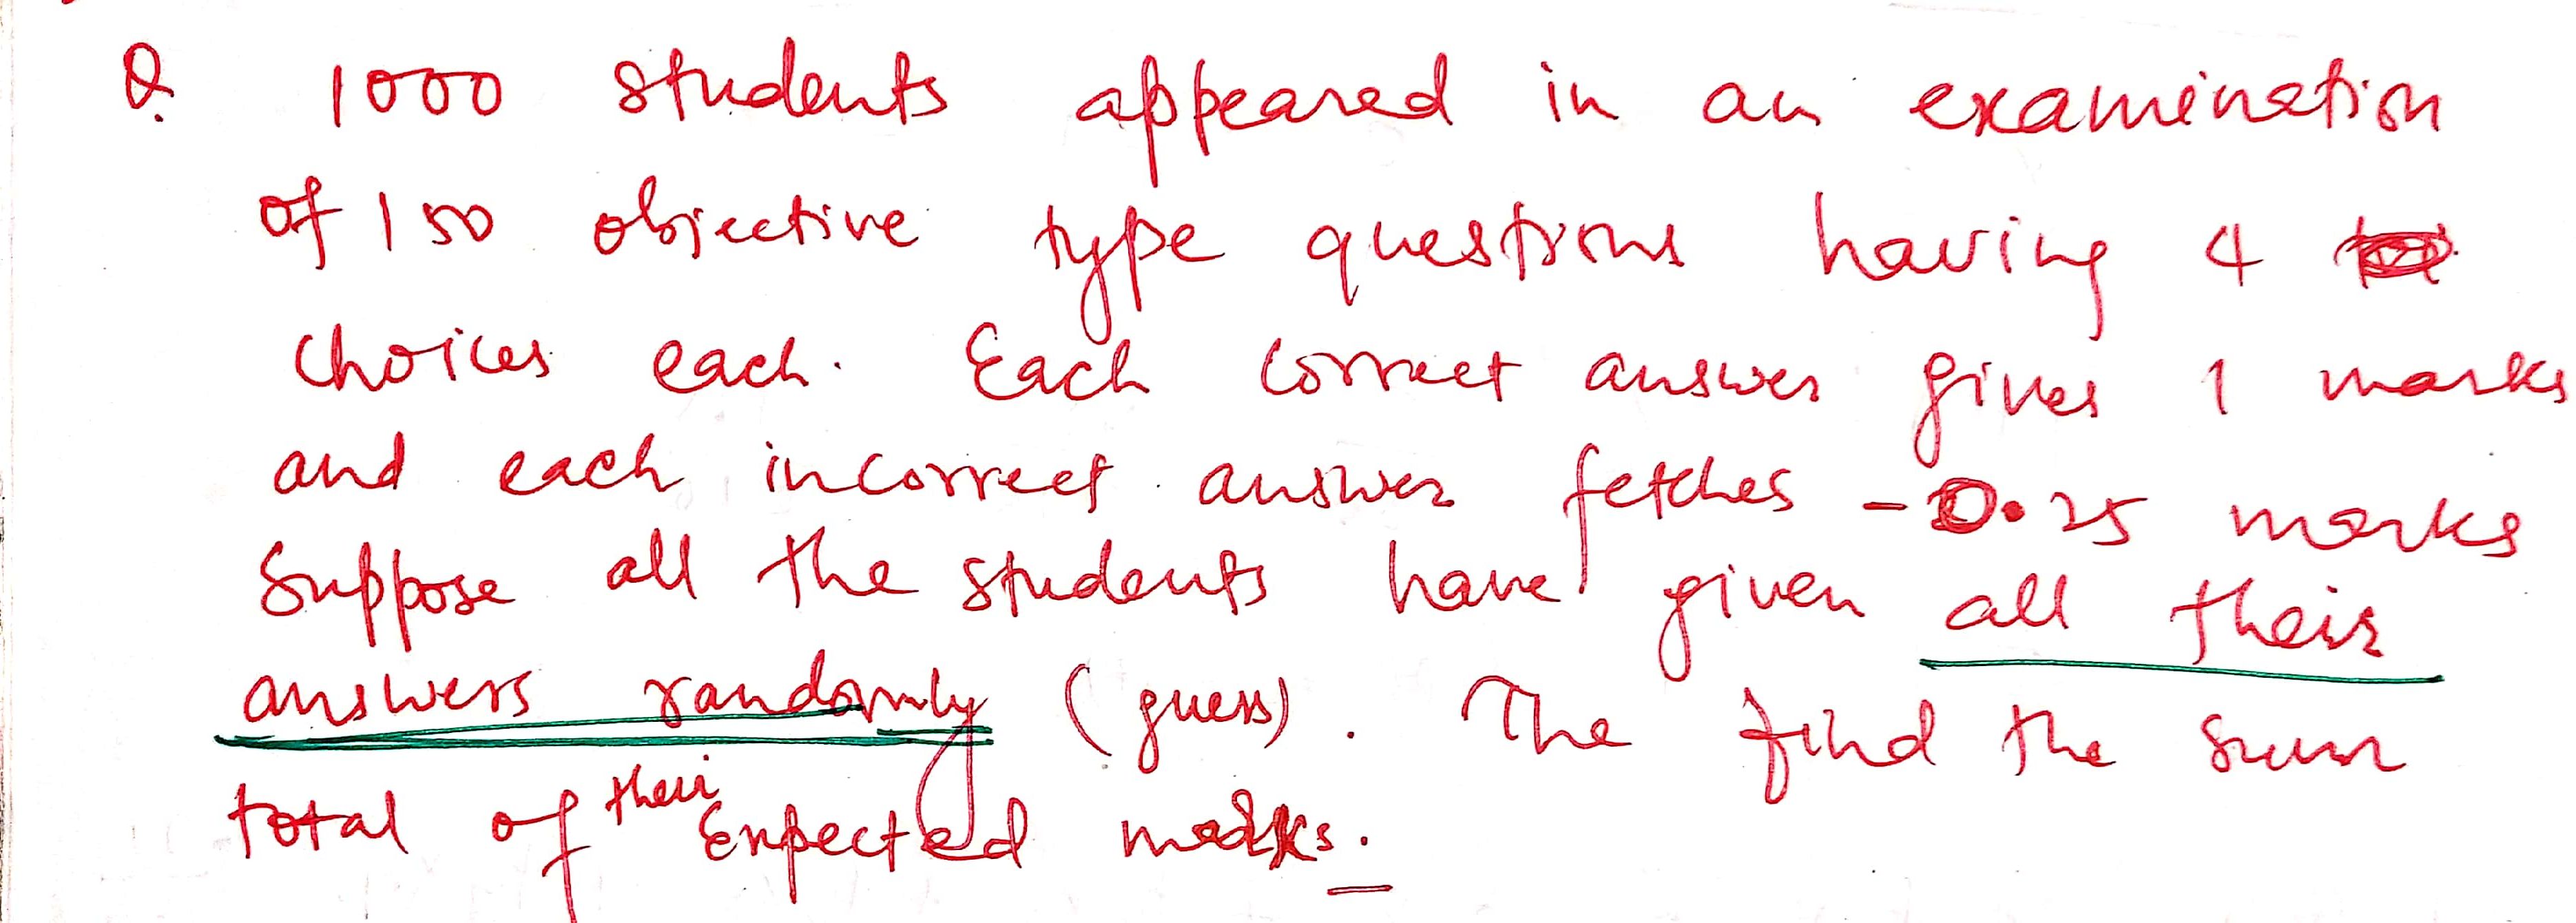 Q. 1000 students appeared in an examination
of 150 objective type questions having 4
choices each. Each correct answer gives 1 marks
and each incorrect answer fetches -0.25 marks
Suppose all the students have given all their
answers randomly (guess). The find the sum
total of their Expected marks.